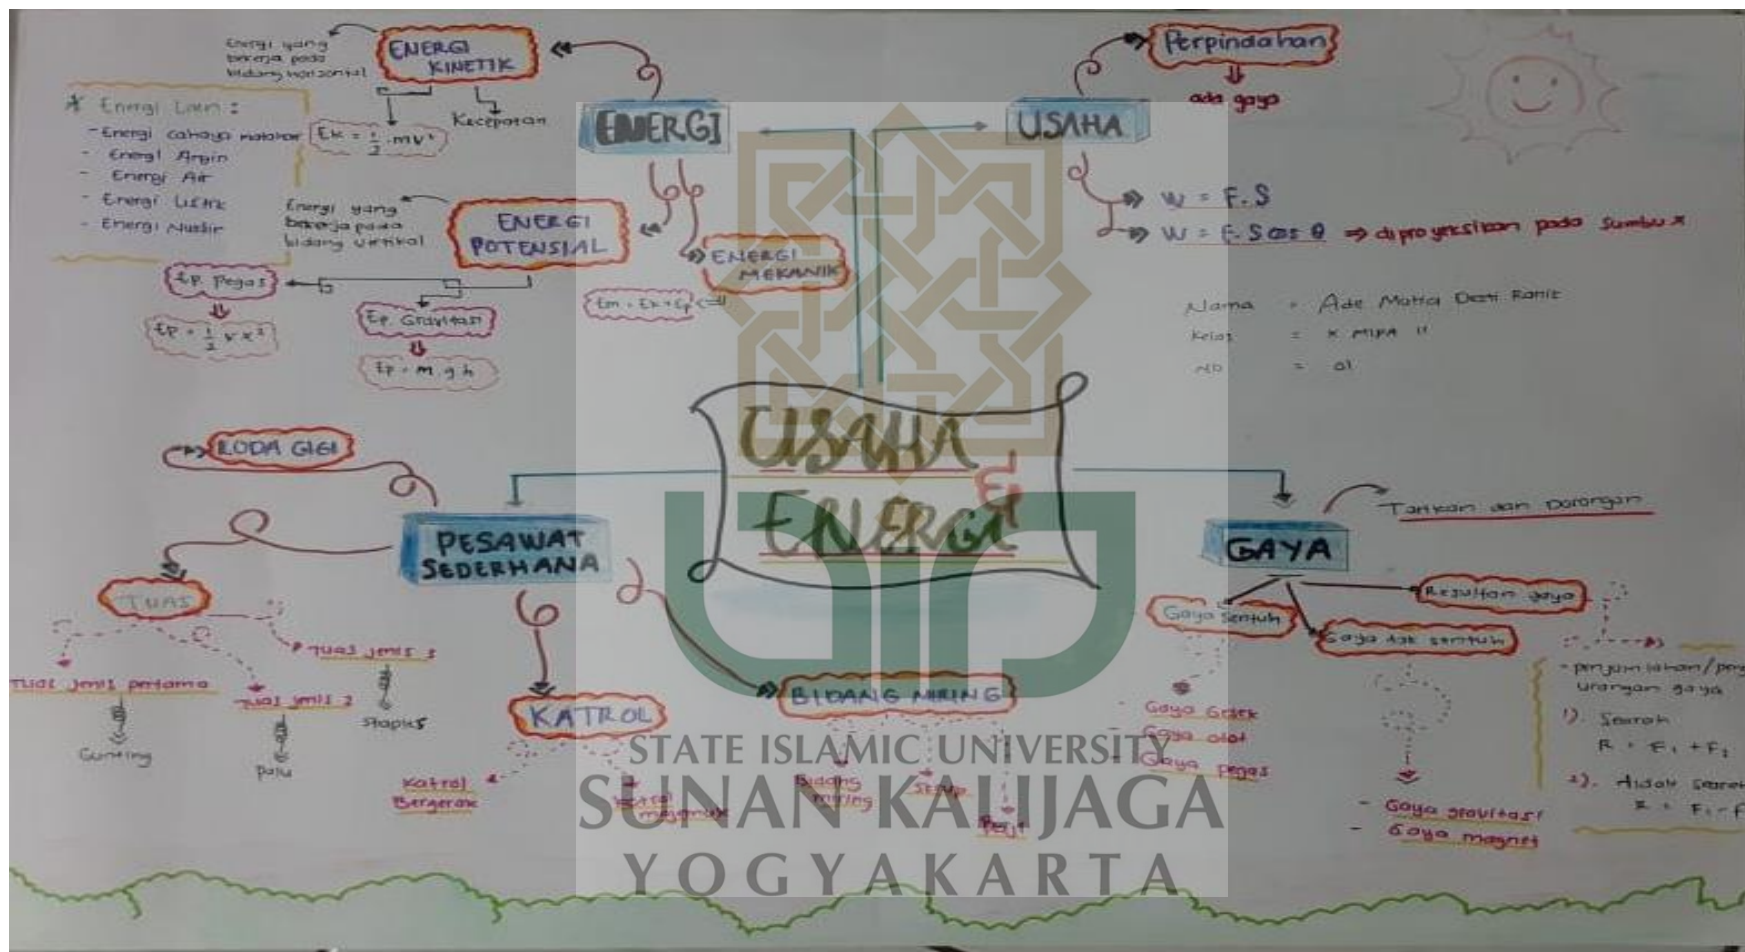 Energi yang
bekerja pada
bidang horizontal
ENERGI
KINETIK
Ek = 1/2 . mv²
Kecepatan
* Energi Lain :
- Energi cahaya matahari
- Energi Angin
- Energi Air
- Energi Listrik
- Energi Nuklir
ENERGI
Energi yang
bekerja pada
bidang vertikal
ENERGI
POTENSIAL
ENERGI
MEKANIK
Em = Ek + Ep
Ep. Pegas
Ep = 1/2 k x²
Ep. Gravitasi
Ep = m g h
USAHA
Perpindahan
ada gaya
W = F. S
W = F. S cos θ ⇒ diproyeksikan pada sumbu x
Nama =
Kelas = X MIPA
No = 01
USAHA
&
ENERGI
RODA GIGI
PESAWAT
SEDERHANA
TUAS
Tuas jenis pertama
Gunting
Tuas jenis 2
palu
Tuas jenis 3
Staples
KATROL
Katrol
Bergerak
Katrol
majemuk
BIDANG MIRING
Bidang
miring
GAYA
Tarikan dan Dorongan
Gaya Sentuh
- Gaya Gesek
- Gaya otot
- Gaya pegas
Gaya tak sentuh
- Gaya gravitasi
- Gaya magnet
Resultan gaya
- penjumlahan/peng
urangan gaya
1). Searah
R = F₁ + F₂
2). Tidak Searah
R = F₁ - F
STATE ISLAMIC UNIVERSITY
SUNAN KALIJAGA
YOGYAKARTA